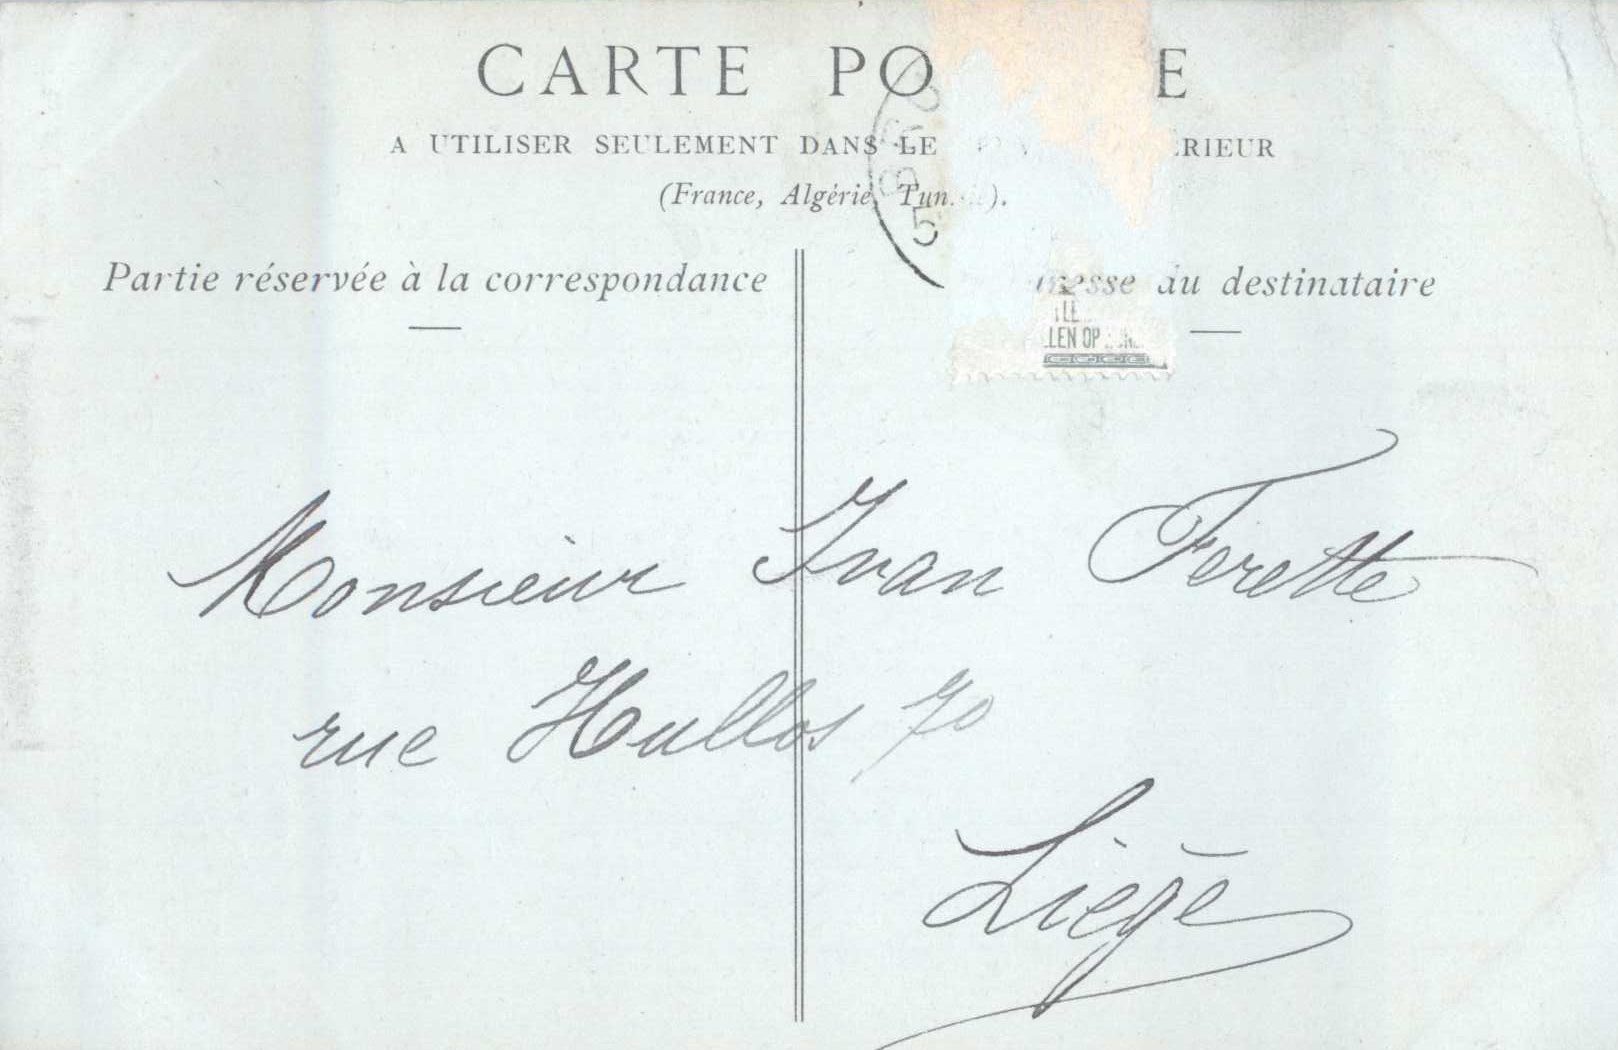 CARTE PO E
A UTILISER SEULEMENT DANS LE ÉRIEUR
(France, Algérie, Tun ).
Partie réservée à la correspondance
esse du destinataire
LLEN OP
5
Monsieur Ivan Ferette
rue Hullos 70
Liège